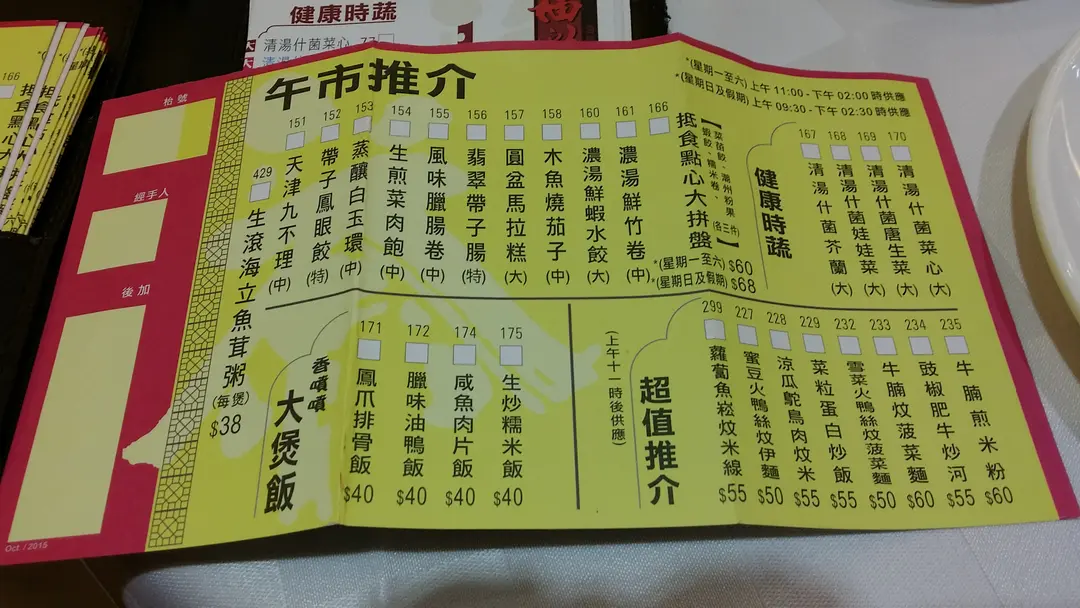 健康時蔬
清湯什菌菜心
午市推介
*(星期一至六) 上午 11:00 - 下午 02:00 時供應
*(星期日及假期) 上午 09:30 - 下午 02:30 時供應
枱號
經手人
後加
Oct / 2015
429 生滾海立魚茸粥 (每煲) $38
151 天津九不理 (中)
152 帶子鳳眼餃 (特)
153 蒸釀白玉環 (中)
154 生煎菜肉飽 (中)
155 風味臘腸卷 (中)
156 翡翠帶子腸 (特)
157 圓盆馬拉糕 (大)
158 木魚燒茄子 (中)
160 濃湯鮮蝦水餃 (大)
161 濃湯鮮竹卷 (中)
166 抵食點心大拼盤
【菜苗餃、潮州粉果
蝦餃、糯米卷、(各三件)】
*(星期一至六) $60
*(星期日及假期) $68
健康時蔬
167 清湯什菌芥蘭 (大)
168 清湯什菌娃娃菜 (大)
169 清湯什菌唐生菜 (大)
170 清湯什菌菜心 (大)
香噴噴
大煲飯
171 鳳爪排骨飯 $40
172 臘味油鴨飯 $40
174 咸魚肉片飯 $40
175 生炒糯米飯 $40
(上午十一時後供應)
超值推介
299 蘿蔔魚崧炆米線 $55
227 蜜豆火鴨絲炆伊麵 $50
228 涼瓜鴕鳥肉炆米 $55
229 菜粒蛋白炒飯 $55
232 雪菜火鴨絲炆菠菜麵 $50
233 牛腩炆菠菜麵 $60
234 豉椒肥牛炒河 $55
235 牛腩煎米粉 $60
166
抵食點心大